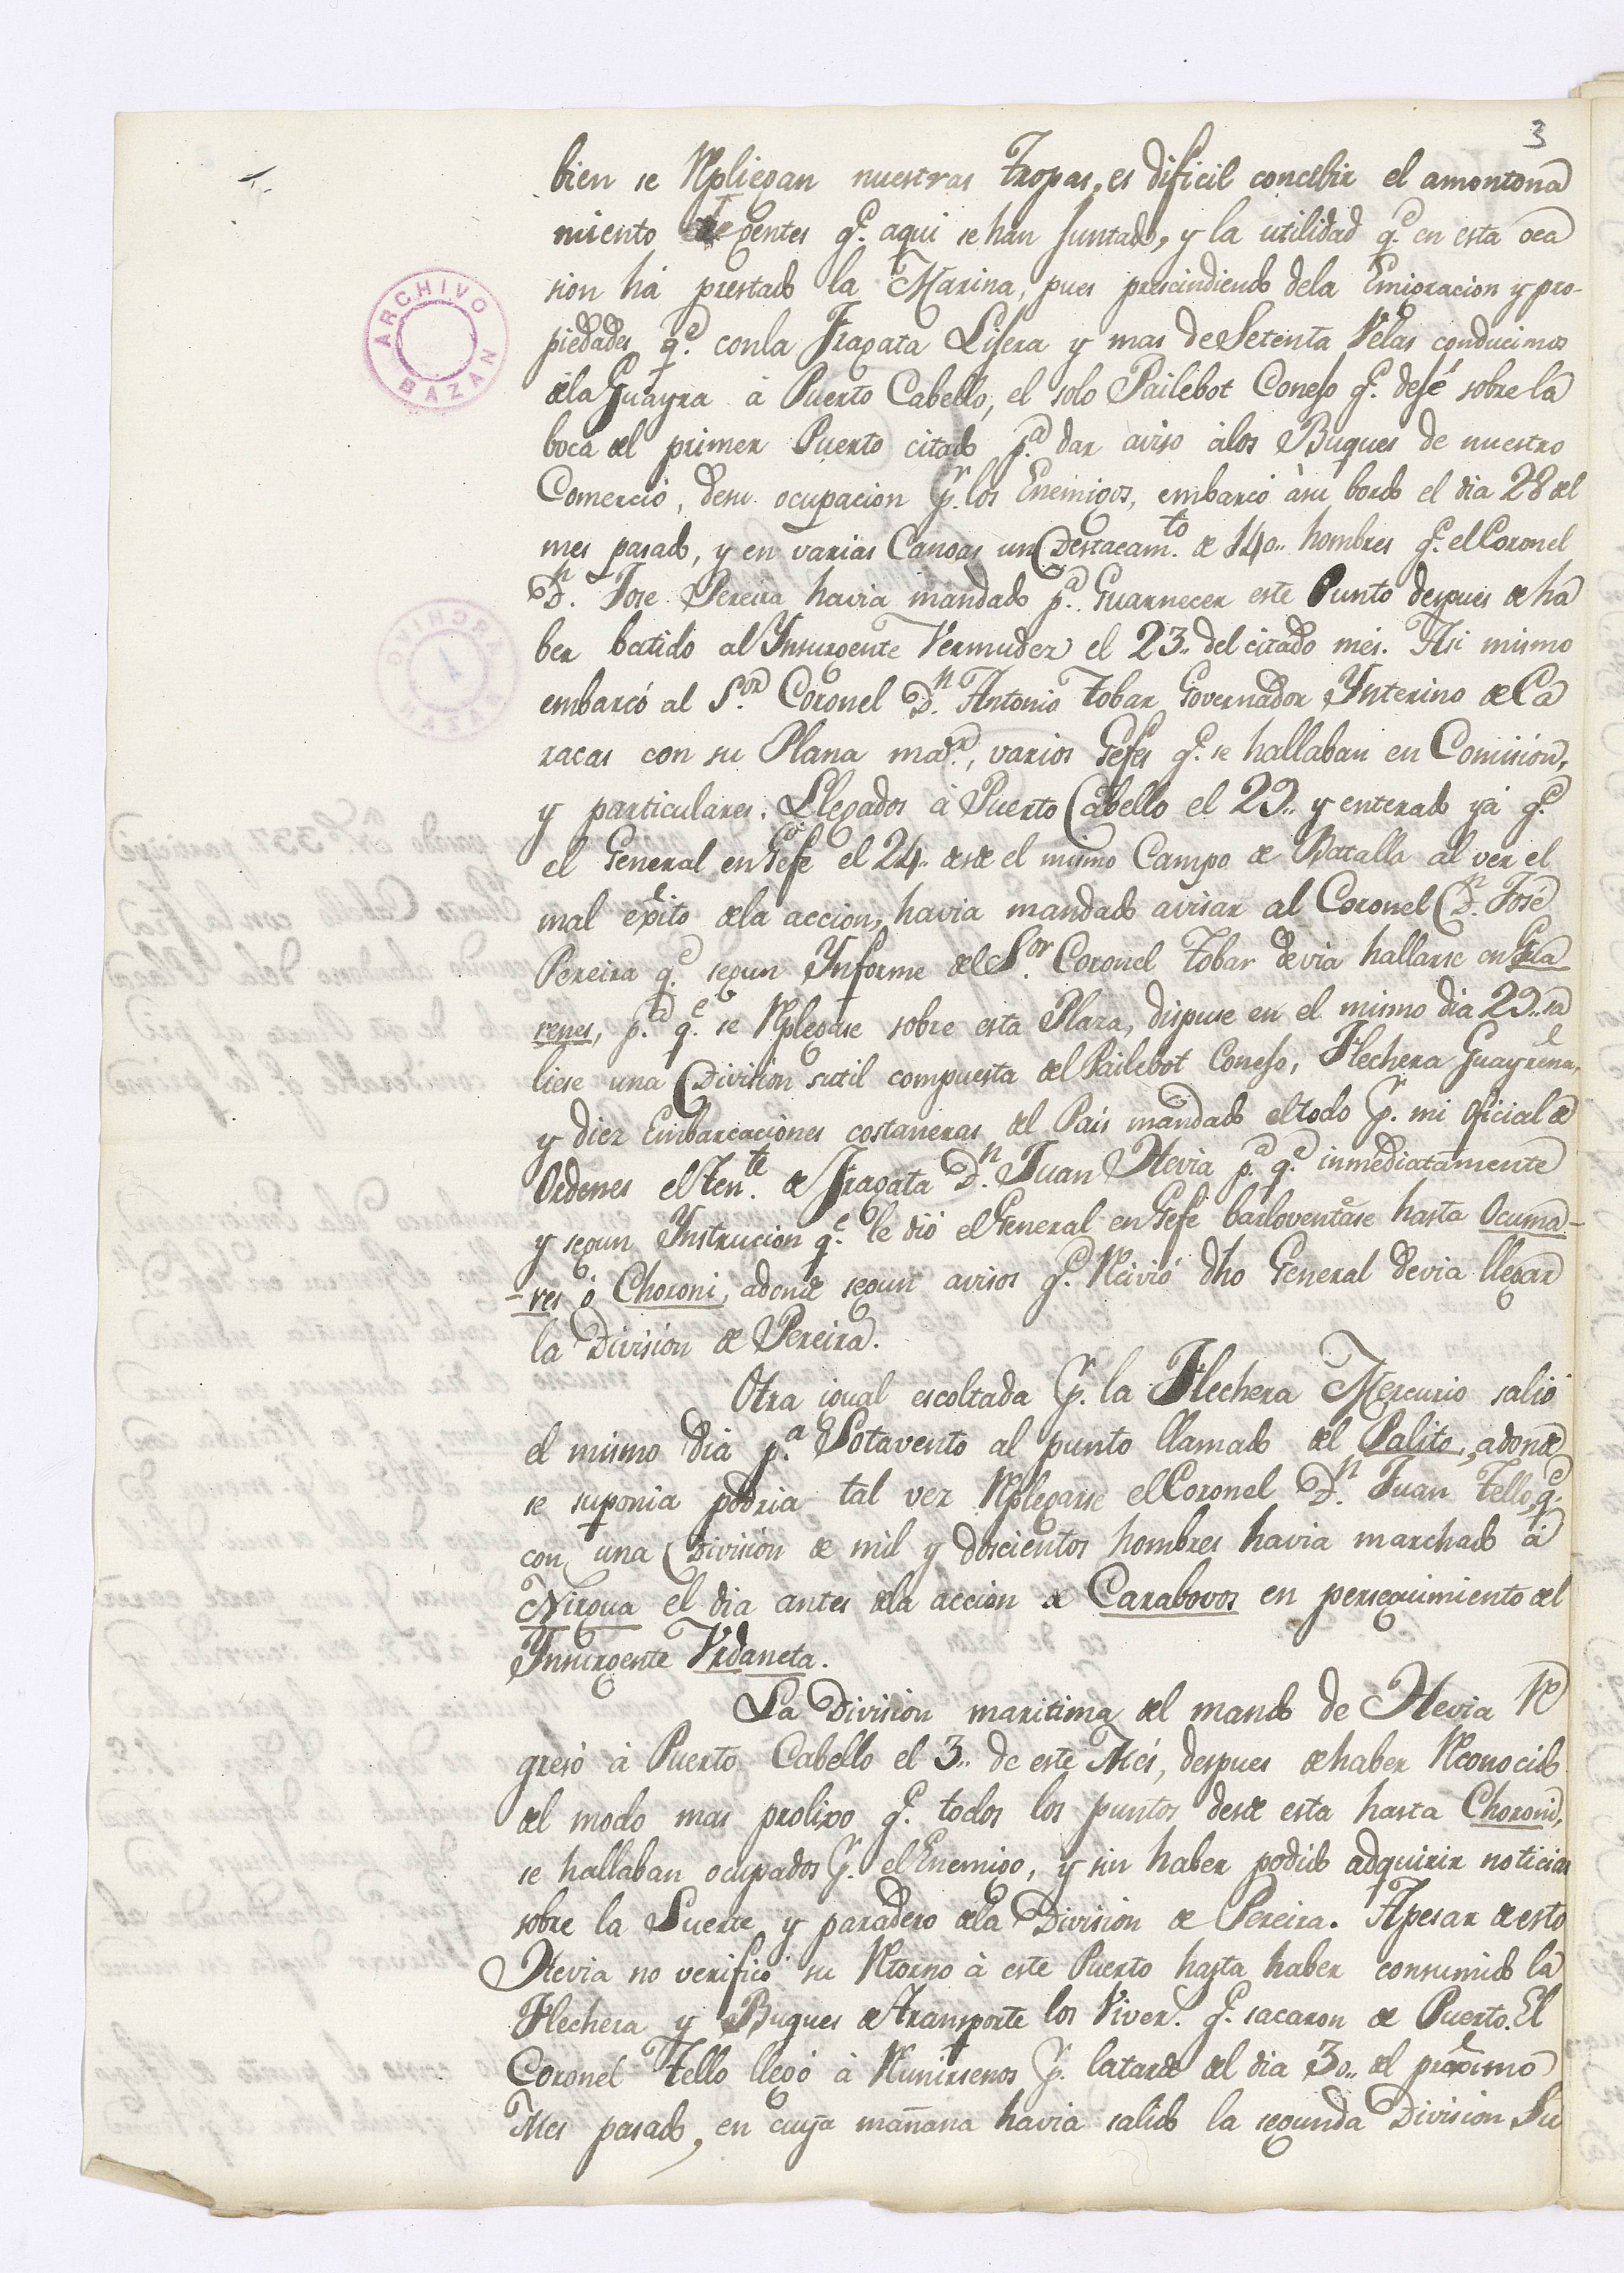 3
bien se Repliegan nuestras tropas, es dificil concebir el amontona
miento de gentes q.e aqui se han juntado, y la utilidad q.e en esta oca
sion há prestado la Marina, pues prescindiendo dela Emigracion y pro-
piedades q.e conla Fragata Lijera y mas de Setenta Velas conducimos
dela Guayra á Puerto Cabello, el solo Pailebot Conejo q.e dejé sobre la
boca del primer Puerto citado p.a dar aviso álos Buques de nuestro
Comercio, desu ocupacion p.r los Enemigos, embarcó ásu bordo el dia 28 del
mes pasado, y en varias Canoas un Destacam.to de 140.. hombres q.e el Coronel
D.n Jose Pereira havia mandado p.a Guarnecer este Punto despues de ha
ber batido al Ynsurgente Vermudez el 23.. del citado mes. Asi mismo
embarcó al S.or Coronel D.n Antonio Tobar Governador Ynterino de Ca
racas con su Plana ma.or, varios Gefes q.e se hallaban en Comision,
y particulares. Llegados á Puerto Cabello el 29.. y enterado yá q.e
el General en Gefe el 24.. desde el mismo Campo de Batalla al ver el
mal exito dela accion, havia mandado avisar al Coronel D.n José
Pereira q.e segun Ynforme del S.or Coronel Tobar devia hallarse en Gua
renes, p.a q.e se Replegase sobre esta Plaza, dispuse en el mismo dia 29.. sa
liese una Division sutil compuesta del Pailebot Conejo, Flechera Guayreña,
y diez Embarcaciones costaneras del Pais mandado el todo p.r mi oficial de
Ordenes el Ten.te de Fragata D.n Juan Hevia p.a q.e inmediatamente
y segun Ynstrucion q.e le dió el General en Gefe barloventase hasta Ocuma-
-res ó Choroni, adonde segun avisos q.e Recivió dho General devia llegar
la Division de Pereira.
Otra igual escoltada p.r la Flechera Mercurio salió
el mismo dia p.a Sotavento al punto llamado del Palito, adonde
se suponia podria tal vez Replegarse el Coronel D.n Juan Tello, q.e
con una Division de mil y doscientos hombres havia marchado á
Nirgua el dia antes dela accion de Carabovos en perseguimiento del
Ynsurgente Vrdaneta.
La Division maritima del mando de Hevia Re
gresó á Puerto Cabello el 3.. de este Mes, despues dehaber Reconocido
del modo mas prolixo q.e todos los puntos desde esta hasta Choroni,
se hallaban ocupados p.r el Enemigo, y sin haber podido adquirir noticias
sobre la Suerte y paradero dela Division de Pereira. Apesar de esto
Hevia no verificó su Retorno á este Puerto hasta haber consumido la
Flechera y Buques de transporte los Viver.s q.e sacaron de Puerto. El
Coronel Tello llegó á Reunirsenos p.r latarde del dia 30.. del proximo
Mes pasado, en cuya mañana havia salido la segunda Division Su
ARCHIVO BAZAN